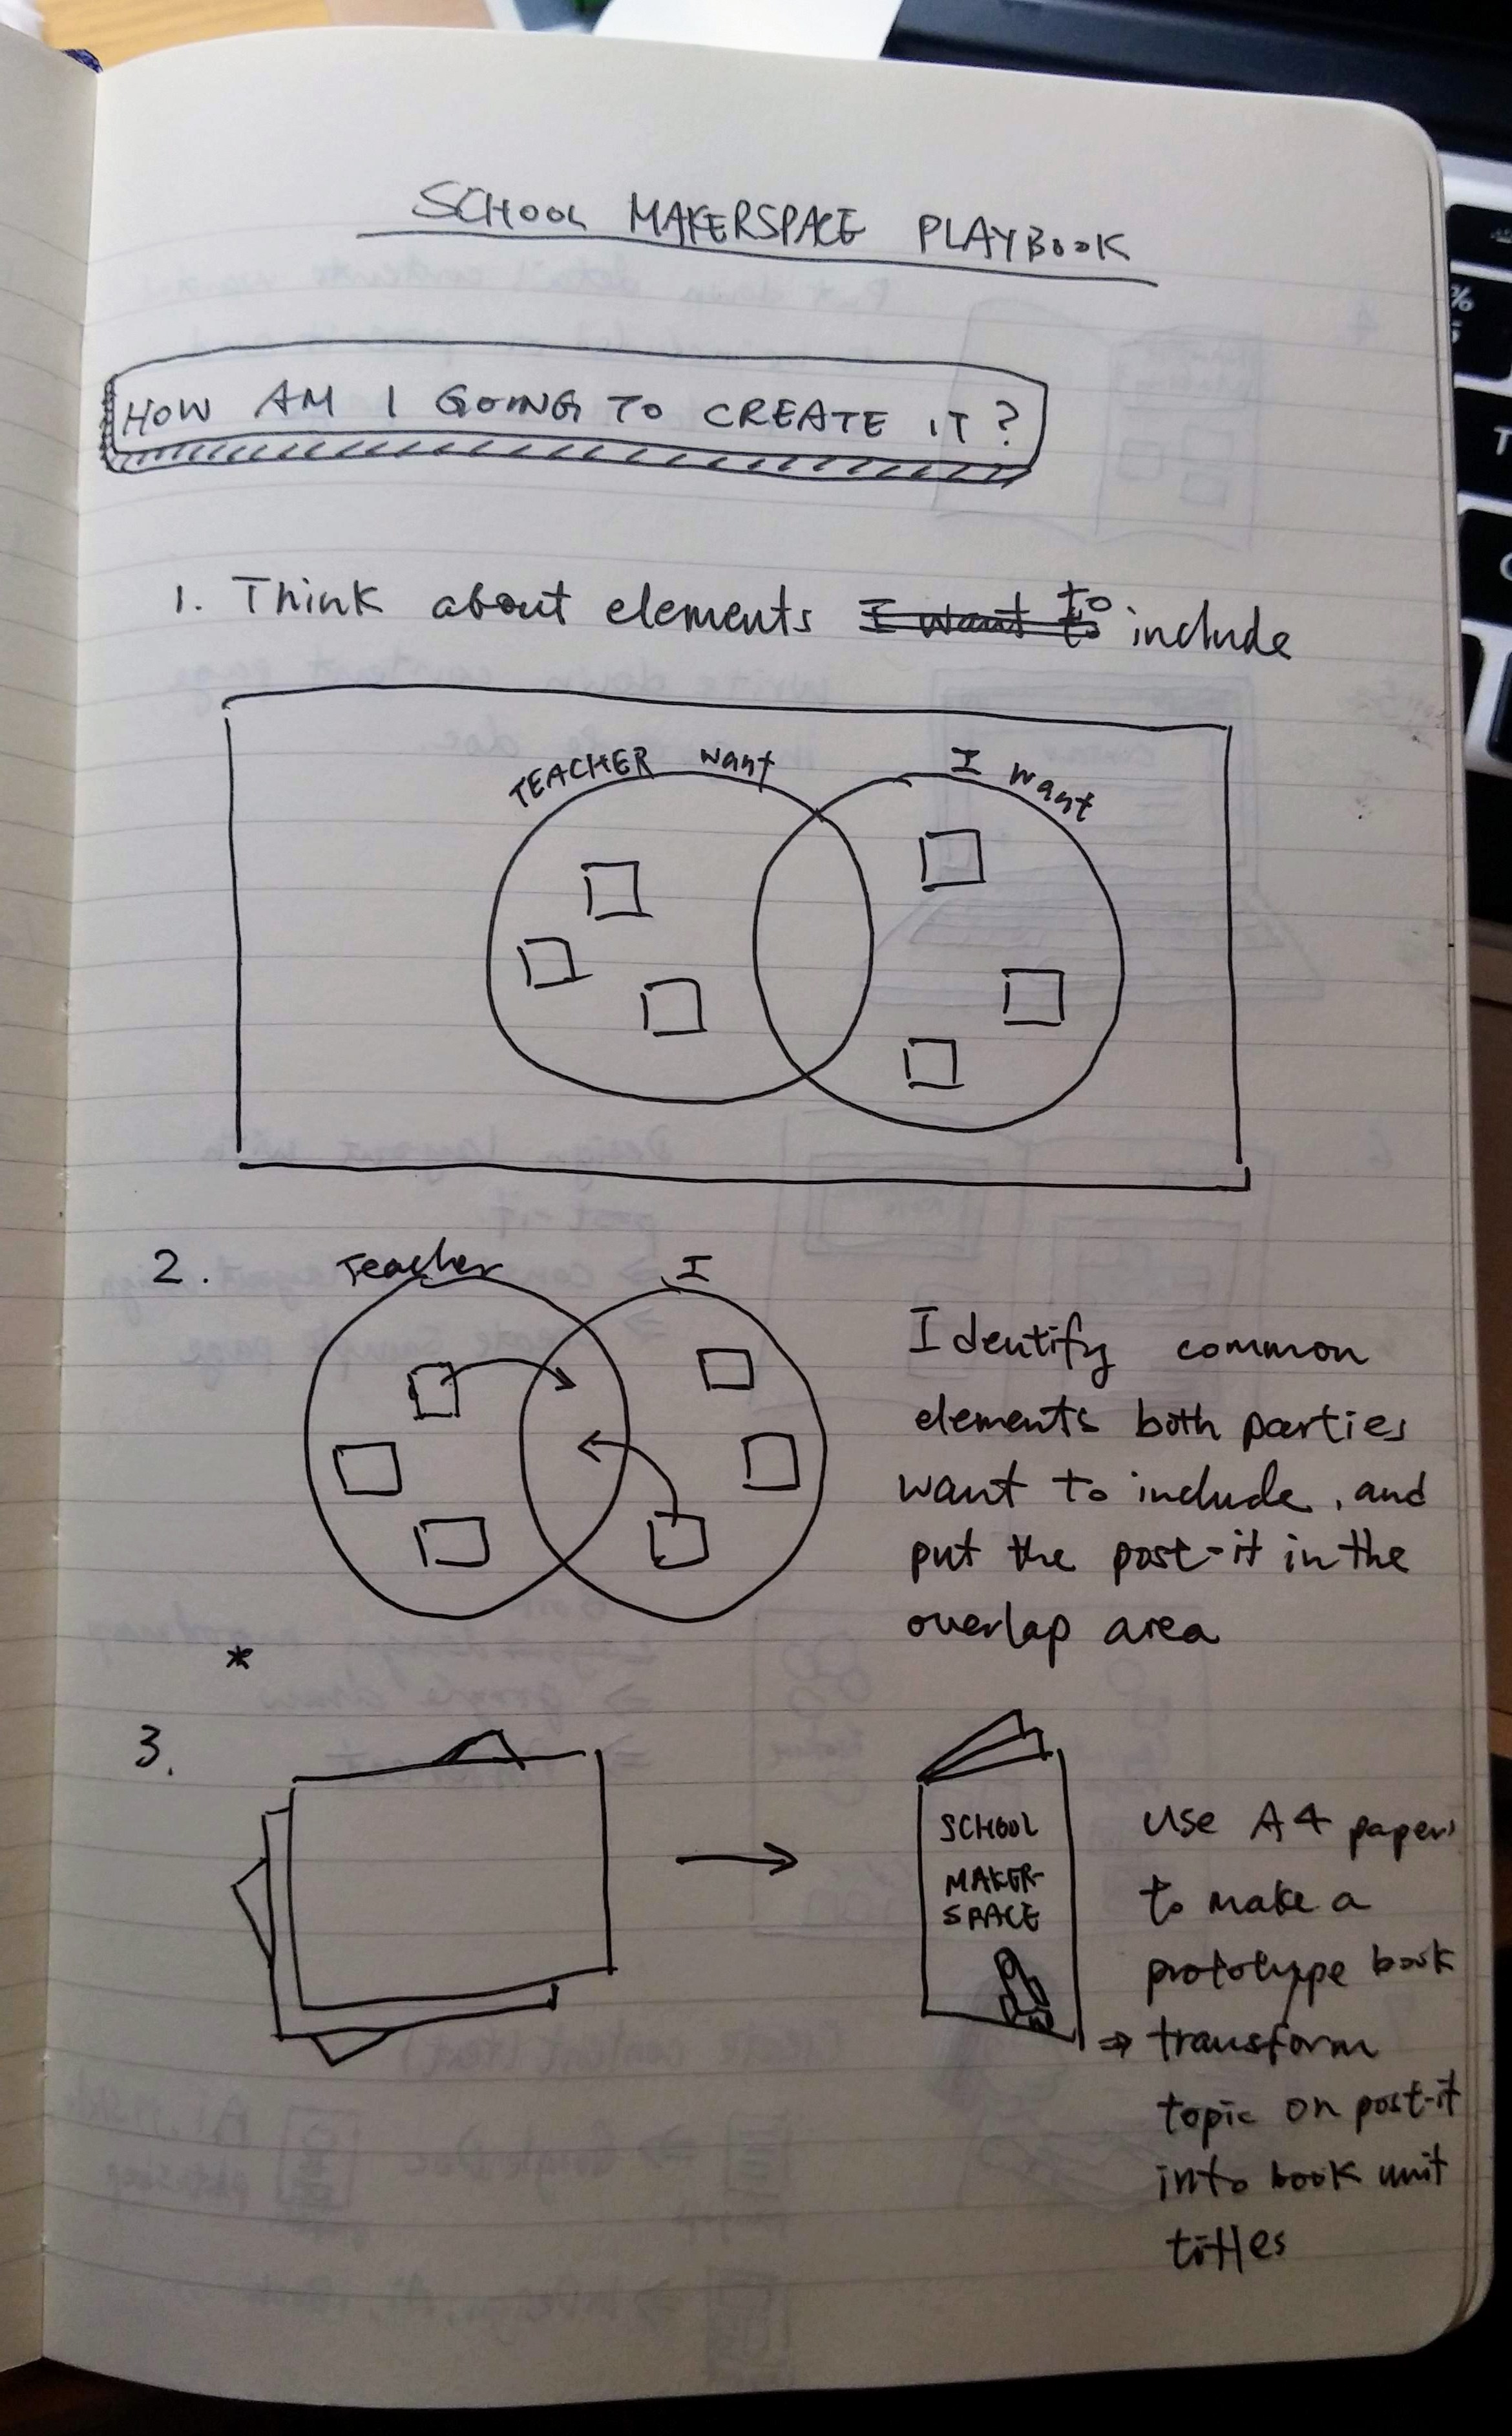 SCHOOL MAKERSPACE PLAYBOOK
HOW AM I GOING TO CREATE IT?
1. Think about elements I want to to include
TEACHER want
I want
2.
Teacher
I
Identify common
elements both parties
want to include, and
put the post-it in the
overlap area
*
3.
SCHOOL
MAKER-
SPACE
Use A4 papers
to make a
prototype book
⇒ transform
topic on post-it
into book unit
titles